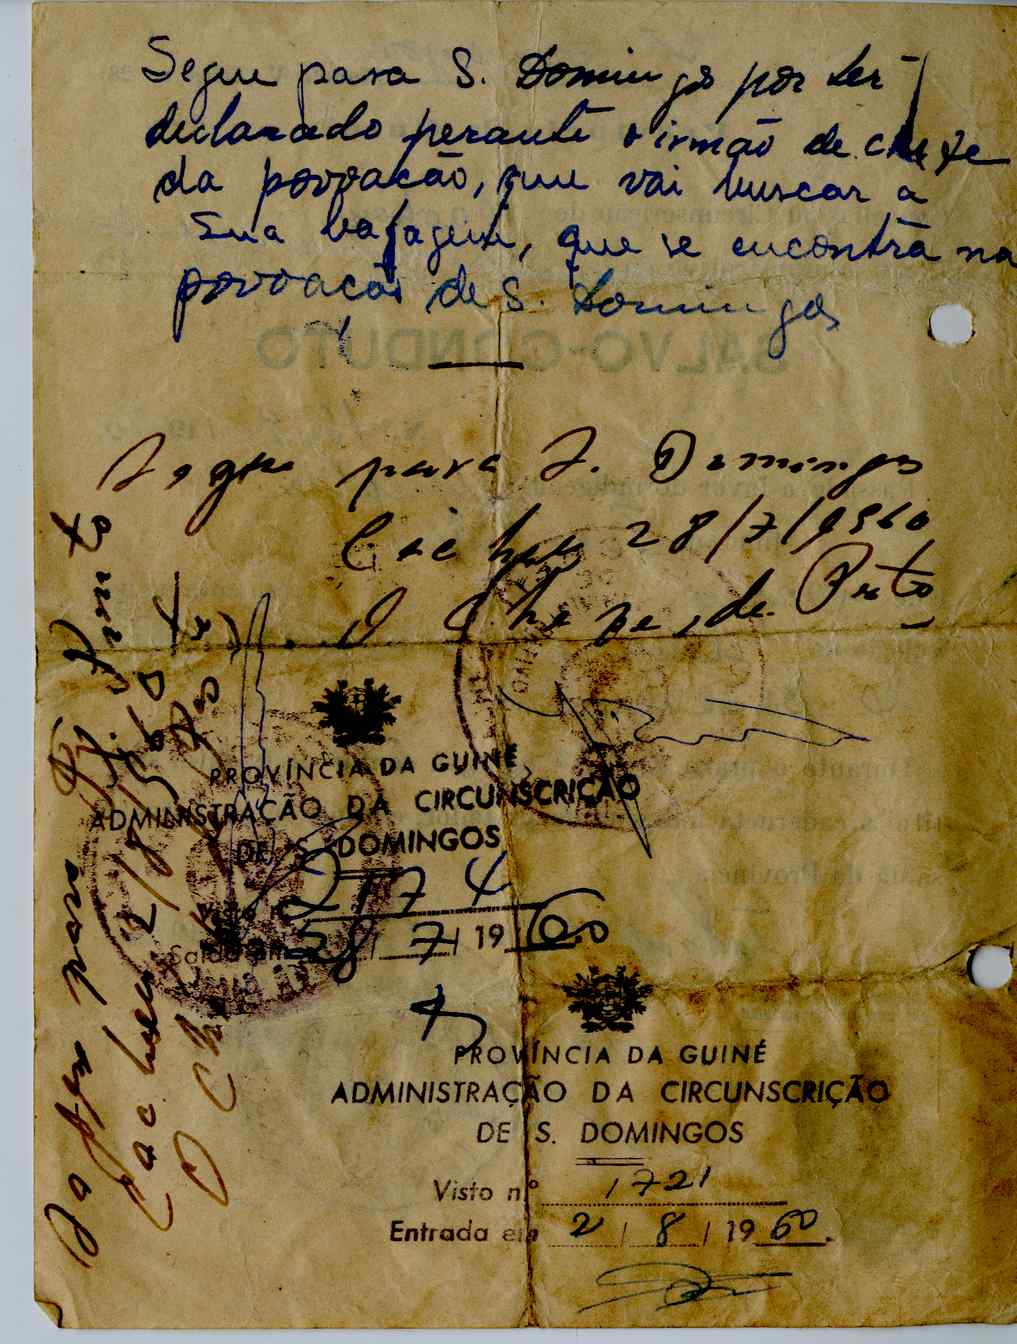 Segue para S. Domingos por ter
declarado perante o irmão de chefe
da povoacão, que vai buscar a
sua bagagem, que se encontra na
povoacão de S. Domingos
SALVO-CONDUTO
Segue para S. Domingos
Cacheu 28/7/1960
O Chefe de Posto
PROVÍNCIA DA GUINÉ
ADMINISTRAÇÃO DA CIRCUNSCRIÇÃO
DE S. DOMINGOS
2174
Saída em 28/7/1960
PROVÍNCIA DA GUINÉ
ADMINISTRAÇÃO DA CIRCUNSCRIÇÃO
DE S. DOMINGOS
Visto n.º 1721
Entrada em 2/8/1960.
Segue para
Cacheu 2/8/
O Chefe